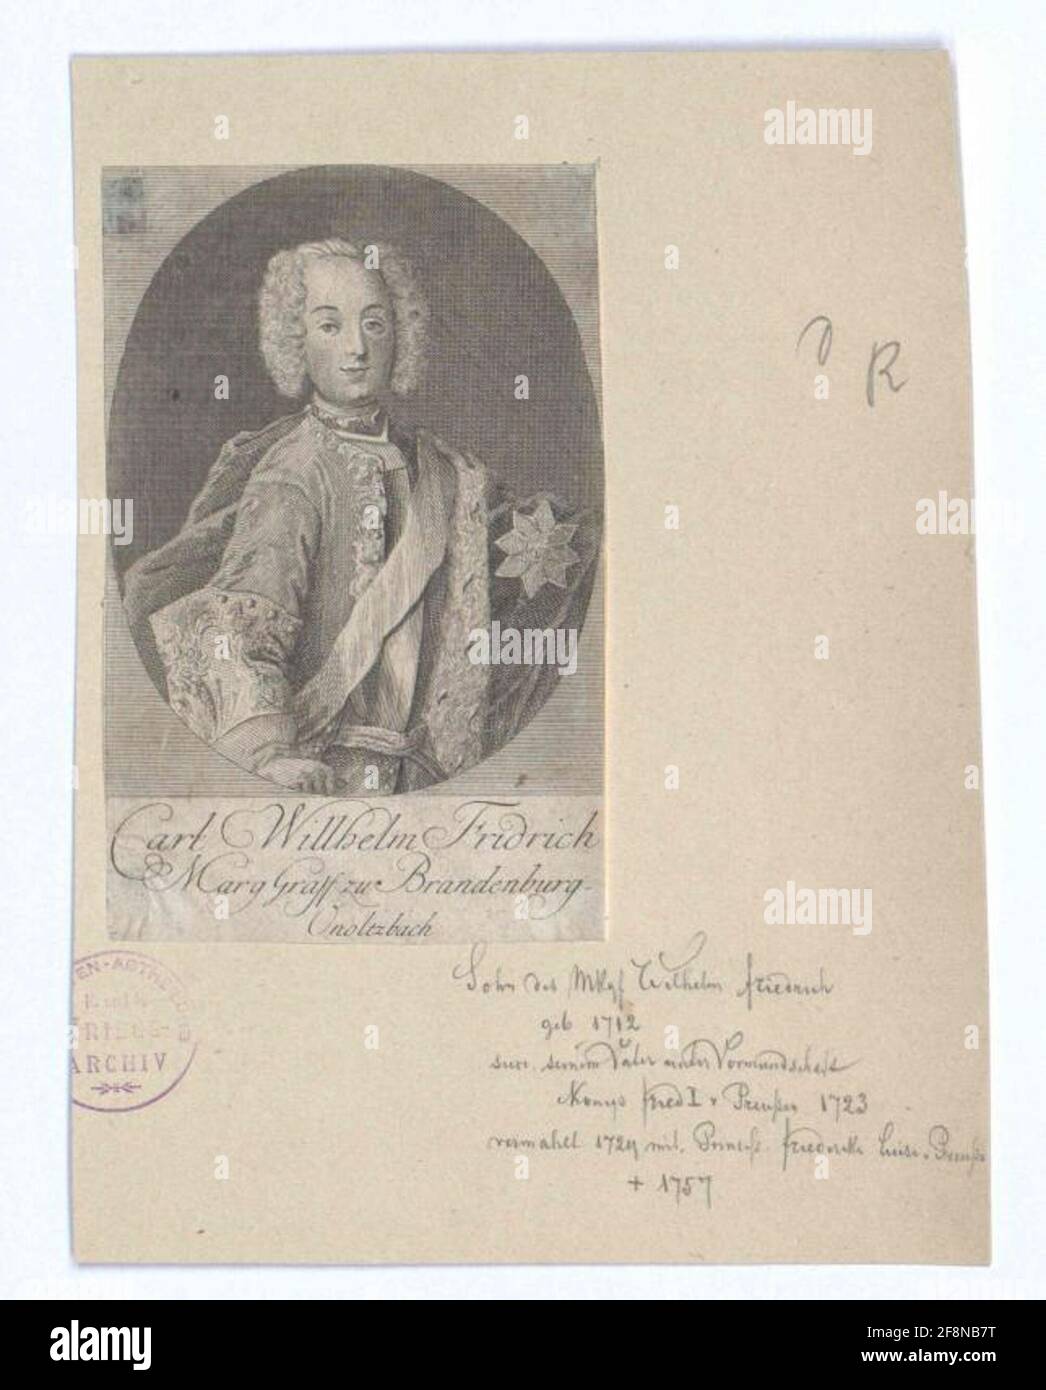 R
Carl Willhelm Fridrich
Marg Graff zu Brandenburg-
Onoltzbach
ARCHIV
Sohn des Mkgf Wilhelm Friedrich
geb 1712
succ. seinem Vater unter Vormundschaft
Königs Fried I v Preußen 1723
vermählt 1729 mit. Prinzess. Friederike Luise v Preuß
+ 1757
alamy
Image ID: 2F8NB7T
www.alamy.com